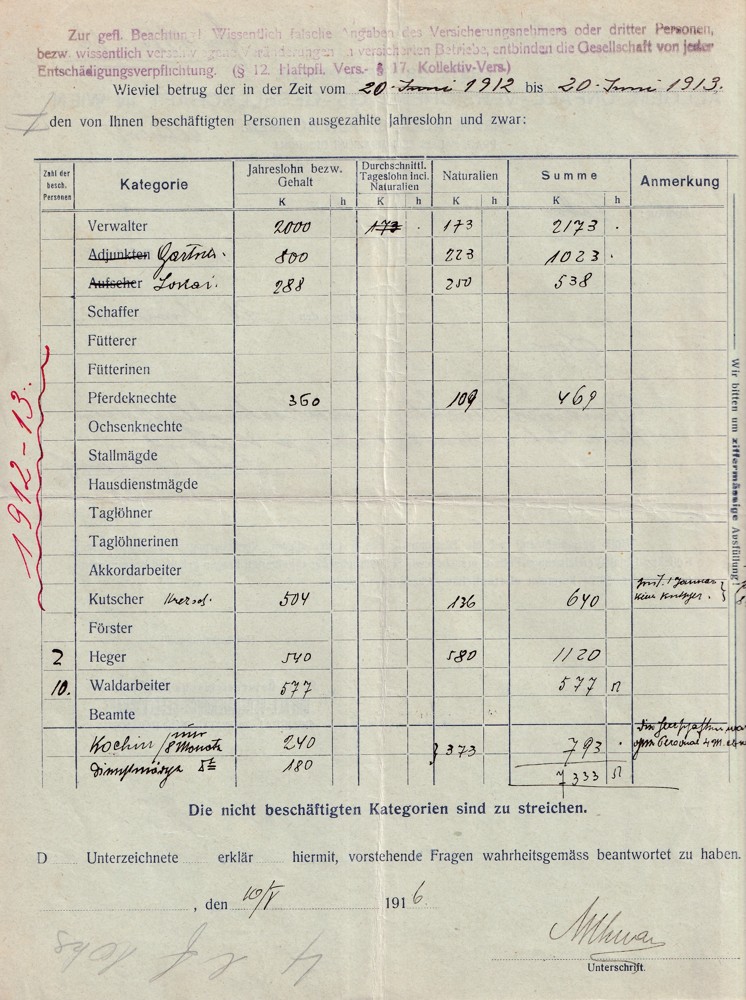 Zur gefl. Beachtung! Wissentlich falsche Angaben des Versicherungsnehmers oder dritter Personen,
bezw. wissentlich Veränderungen versicherten Betriebe, entbinden die Gesellschaft von jeder
Entschädigungsverpflichtung. (§ 12. Haftpfl. Vers.- § 17. Kollektiv-Vers.)
Wieviel betrug der in der Zeit vom 20. Juni 1912 bis 20. Juni 1913.
den von Ihnen beschäftigten Personen ausgezahlte Jahreslohn und zwar:
Zahl der besch. Personen Kategorie Jahreslohn bezw. Gehalt Durchschnittl. Tageslohn incl. Naturalien Naturalien Summe Anmerkung
K h K h K h K h
Verwalter 2000 173 · 173 2173 ·
Adjunkten Gärtner. 800 223 1023 ·
Aufseher Lokai. 288 250 538
Schaffer
Fütterer
Fütterinen
Pferdeknechte 360 109 469
Ochsenknechte
Stallmägde
Hausdienstmägde
Taglöhner
Taglöhnerinen
Akkordarbeiter
Kutscher 504 136 640
Förster
2 Heger 540 580 1120
10. Waldarbeiter 577 577
Beamte
Kochin / nur 8 Monate 240 } 373 793 ·
180 7333
1912-13.
Wir bitten um ziffermässige Ausfüllung!
Die nicht beschäftigten Kategorien sind zu streichen.
D Unterzeichnete erklär hiermit, vorstehende Fragen wahrheitsgemäss beantwortet zu haben.
, den 10/V 1916
Unterschrift.